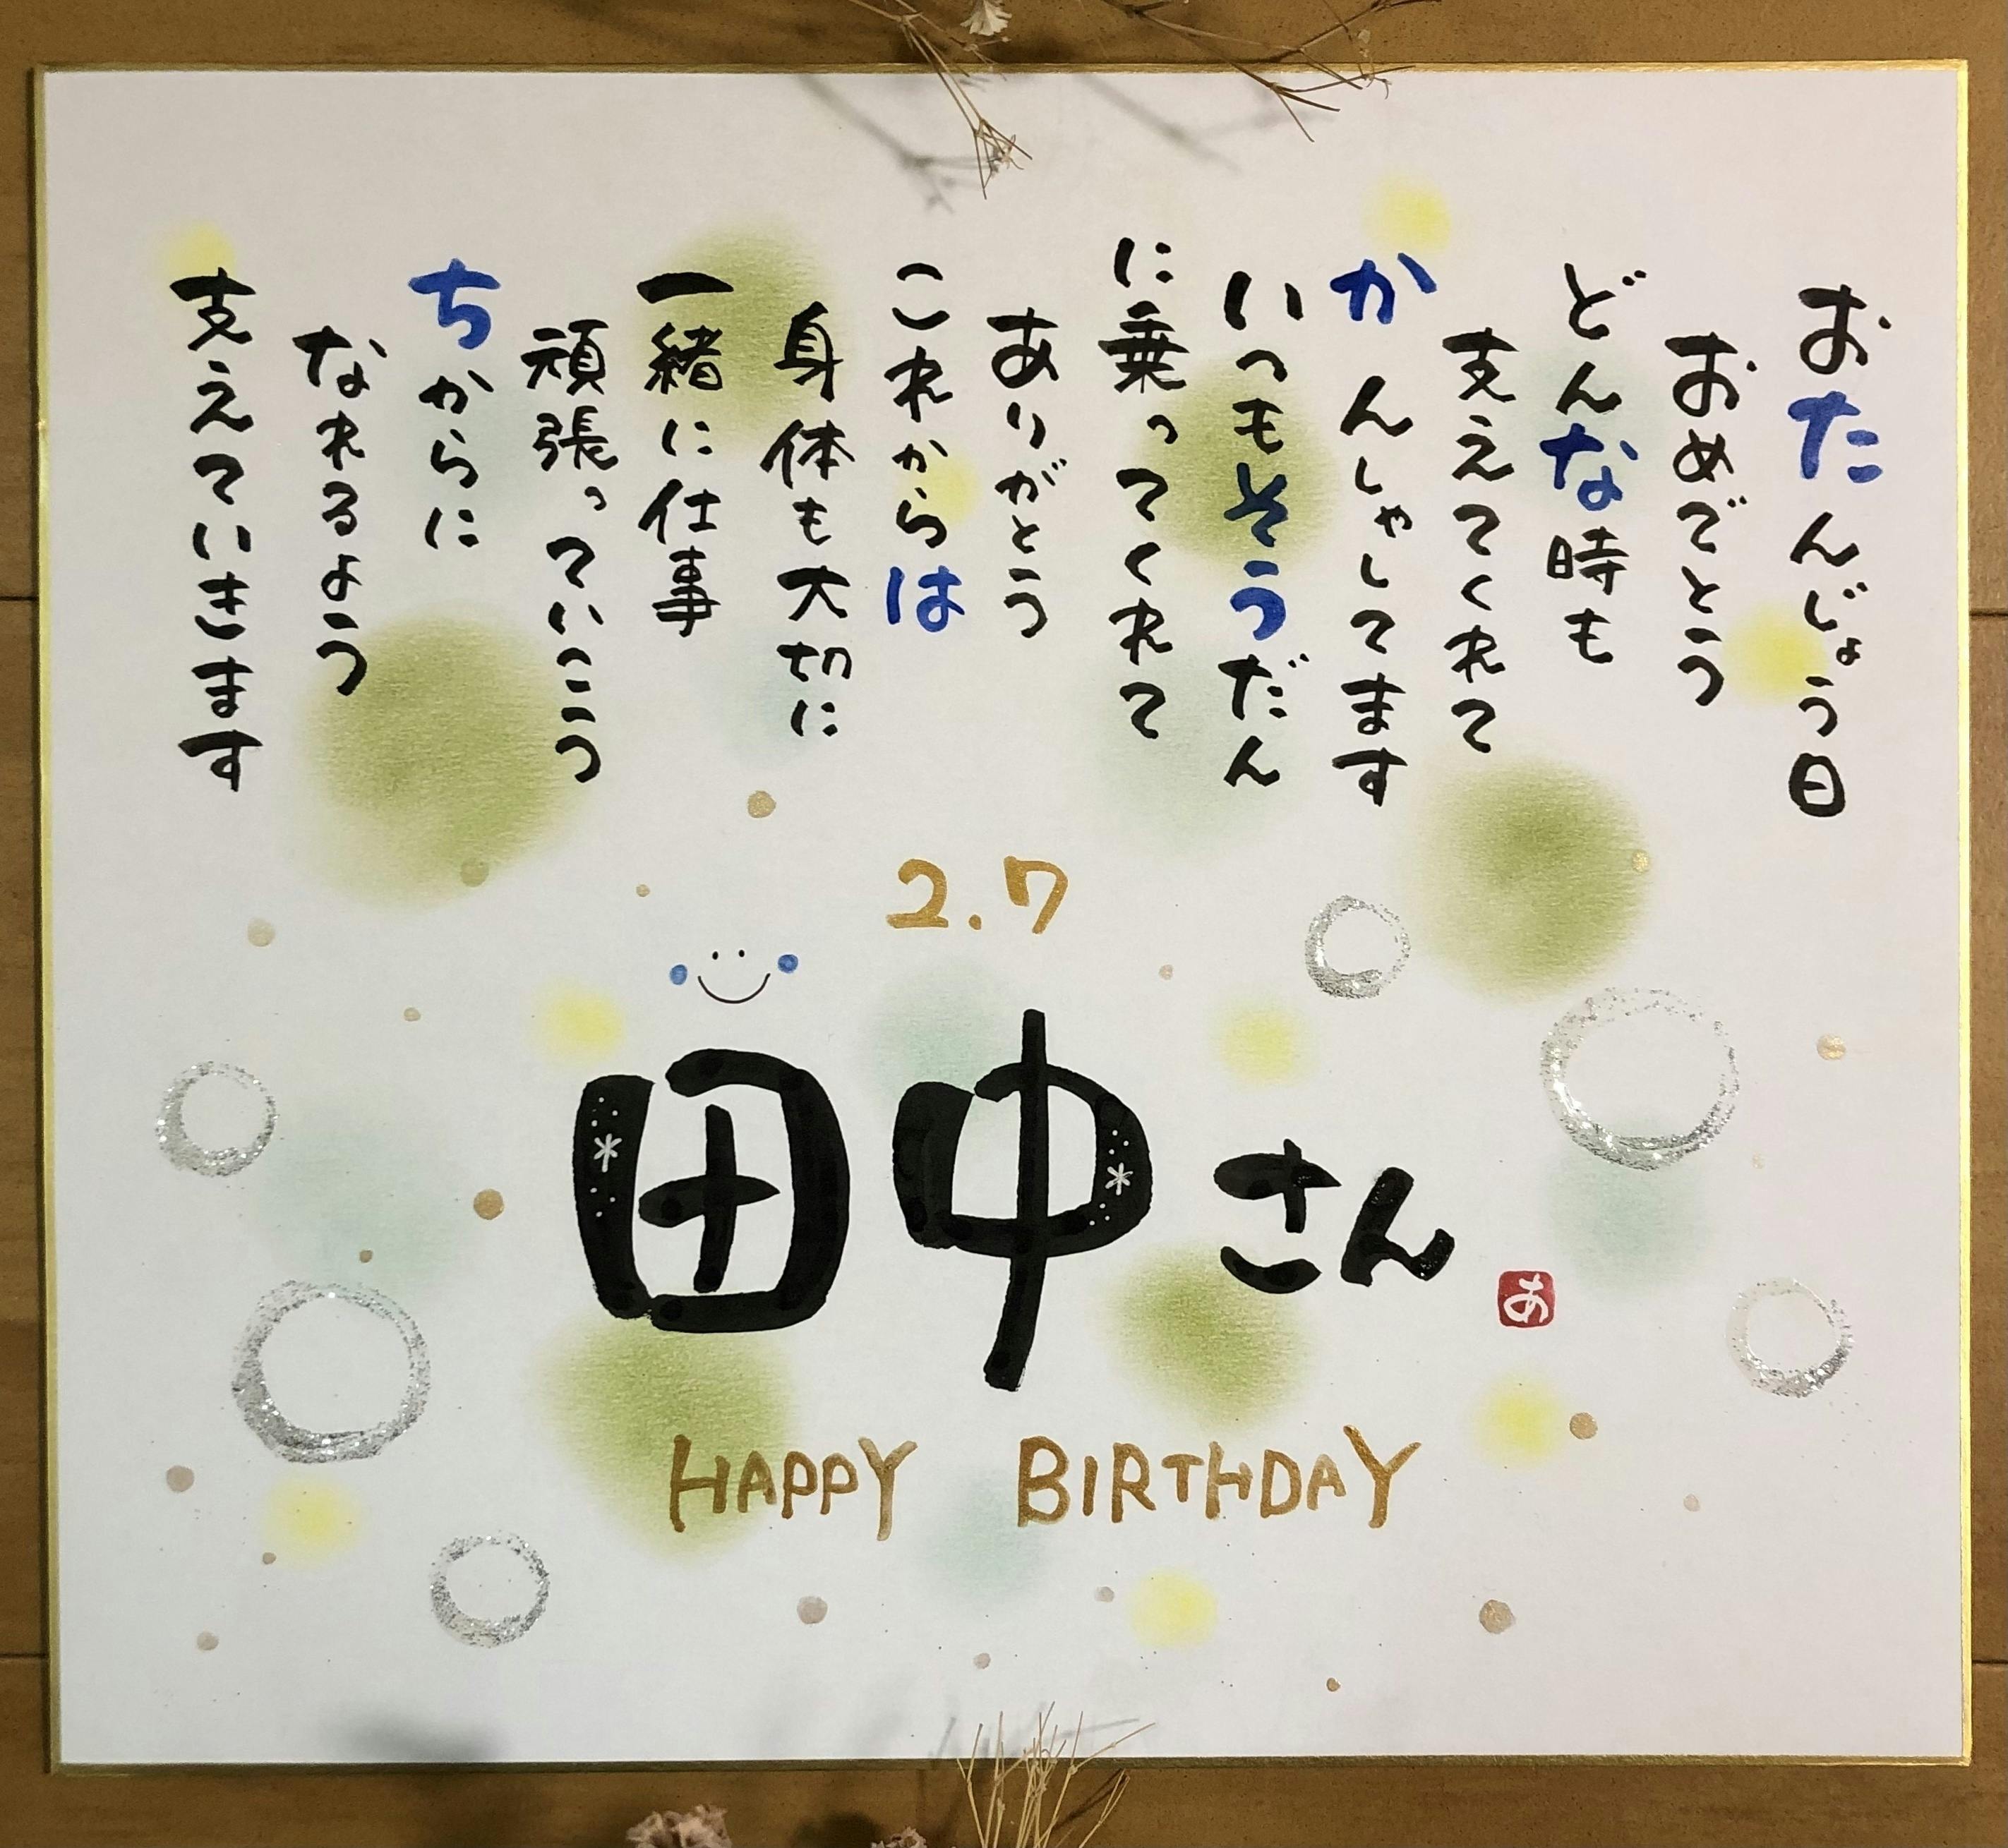 おたんじょう日
おめでとう
どんな時も
支えてくれて
かんしゃしてます
いつもそうだん
に乗ってくれて
ありがとう
これからは
身体も大切に
一緒に仕事
頑張っていこう
ちからに
なれるよう
支えていきます
2.7
田中さん
あ
HAPPY BIRTHDAY